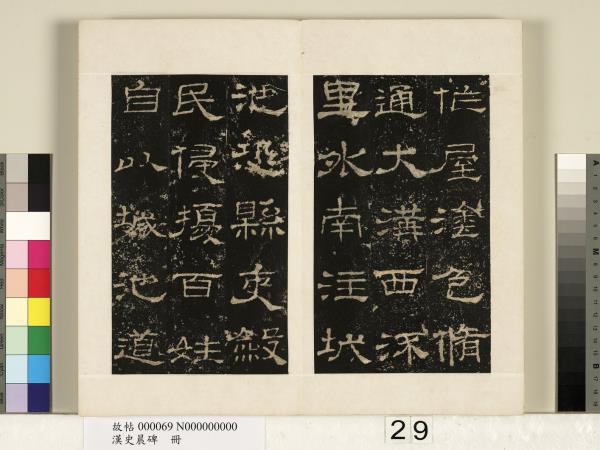 作屋塗色脩
通大溝西流
里外南注城
池恐縣吏斂
民侵擾百姓
自以城池道
故帖 000069 N000000000
漢史晨碑 冊
29